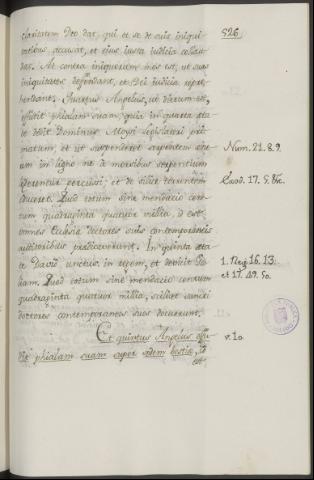 526.
claritatem Deo dat, qui et se de suis iniqui-
tatibus accusat, et ejus justa iudicia collau-
dat. At contra iniquorum mos est, ut suas
iniquitates deffendant, et Dei iudicia repre-
hendant. Quartus Angelus, ut dictum est,
effudit phialam suam, quia in quarta æta-
te dedit Dominus Moysi legislatori pri-
matum, et ut suspenderet serpentem æne-
um in ligno ne de morsibus serpentium
perirent percussi; et de silice torrentem
duceret. Quod totum sine mendacio cen-
tum quadraginta quatuor millia, id est
omnes Eclesiæ doctores suis contemporaneis
auditoribus prædicaverunt. In quinta æta-
te David unctus in regem, et devicit Go-
liam. Quod totum sine mendacio centum
quadraginta quatuor millia, scilicet sancti
doctores contemporaneos suos docuerunt.
Et quintus Angelus effu-
dit phialam suam super sedem bestiæ, id
est
Num. 21. 8. 9.
Exod. 17. 5. 6.
1. Reg. 16. 13.
et 17. 49. 50.
v. 10.